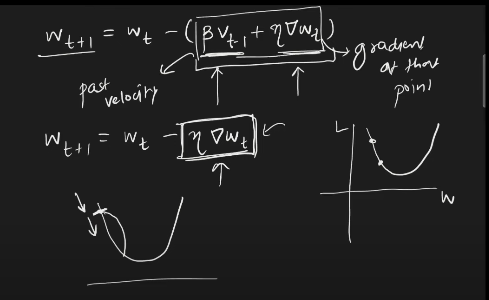 w_{t+1} = w_t - (βv_{t-1} + η∇w_t)
past velocity
gradient at that point
w_{t+1} = w_t - η∇w_t
L
w